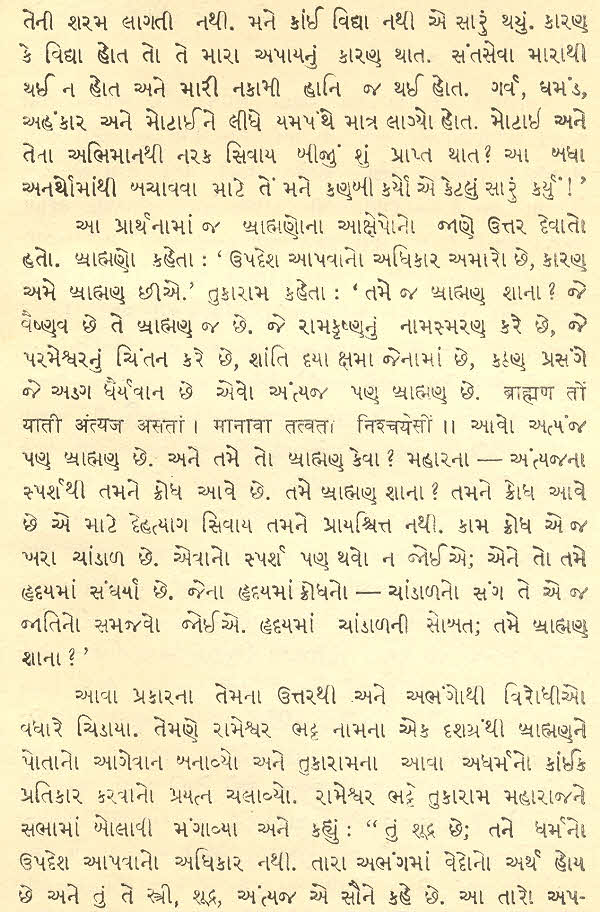 તેની શરમ લાગતી નથી. મને કાંઈ વિદ્યા નથી એ સારું થયું. કારણ
કે વિદ્યા હોત તો તે મારા અપાયનું કારણ થાત. સંતસેવા મારાથી
થઈ ન હોત અને મારી નકામી હાનિ જ થઈ હોત. ગર્વ, ઘમંડ,
અહંકાર અને મોટાઈને લીધે યમપંથે માત્ર લાગ્યો હોત. મોટાઈ અને
તેના અભિમાનથી નરક સિવાય બીજું શું પ્રાપ્ત થાત? આ બધા
અનર્થોમાંથી બચાવવા માટે તેં મને કણબી કર્યો એ કેટલું સારું કર્યું!’
આ પ્રાર્થનામાં જ બ્રાહ્મણોના આક્ષેપોનો જાણે ઉત્તર દેવાતો
હતો. બ્રાહ્મણો કહેતા : ‘ઉપદેશ આપવાનો અધિકાર અમારો છે, કારણ
અમે બ્રાહ્મણ છીએ.’ તુકારામ કહેતા : ‘તમે જ બ્રાહ્મણ શાના? જે
વૈષ્ણવ છે તે બ્રાહ્મણ જ છે. જે રામકૃષ્ણનું નામસ્મરણ કરે છે, જે
પરમેશ્વરનું ચિંતન કરે છે, શાંતિ દયા ક્ષમા જેનામાં છે, કઠણ પ્રસંગે
જે અડગ ધૈર્યવાન છે એવો અંત્યજ પણ બ્રાહ્મણ છે. ब्राह्मण तों
याती अंत्यज असतां । मानावा तत्वतां निश्चयेसीं ।। આવો અત્યંજ
પણ બ્રાહ્મણ છે. અને તમે તો બ્રાહ્મણ કેવા? મહારના — અંત્યજના
સ્પર્શથી તમને ક્રોધ આવે છે. તમે બ્રાહ્મણ શાના? તમને ક્રોધ આવે
છે એ માટે દેહત્યાગ સિવાય તમને પ્રાયશ્ચિત્ત નથી. કામ ક્રોધ એ જ
ખરા ચાંડાળ છે. એવાનો સ્પર્શ પણ થવો ન જોઈએ; એને તો તમે
હૃદયમાં સંઘર્યા છે. જેના હૃદયમાં ક્રોધનો — ચાંડાળનો સંગ તે એ જ
જાતિનો સમજવો જોઈએ. હૃદયમાં ચાંડાળની સોબત; તમે બ્રાહ્મણ
શાના?’
આવા પ્રકારના તેમના ઉત્તરથી અને અભંગોથી વિરોધીઓ
વધારે ચિડાયા. તેમણે રામેશ્વર ભટ્ટ નામના એક દશગ્રંથી બ્રાહ્મણને
પોતાનો આગેવાન બનાવ્યો અને તુકારામના આવા અધર્મનો કાંઈક
પ્રતિકાર કરવાનો પ્રયત્ન ચલાવ્યો. રામેશ્વર ભટ્ટે તુકારામ મહારાજને
સભામાં બોલાવી મંગાવ્યા અને કહ્યું : “તું શૂદ્ર છે; તને ધર્મનો
ઉપદેશ આપવાનો અધિકાર નથી. તારા અભંગમાં વેદોનો અર્થ હોય
છે અને તું તે સ્ત્રી, શૂદ્ર, અંત્યજ એ સૌને કહે છે. આ તારો અપ-